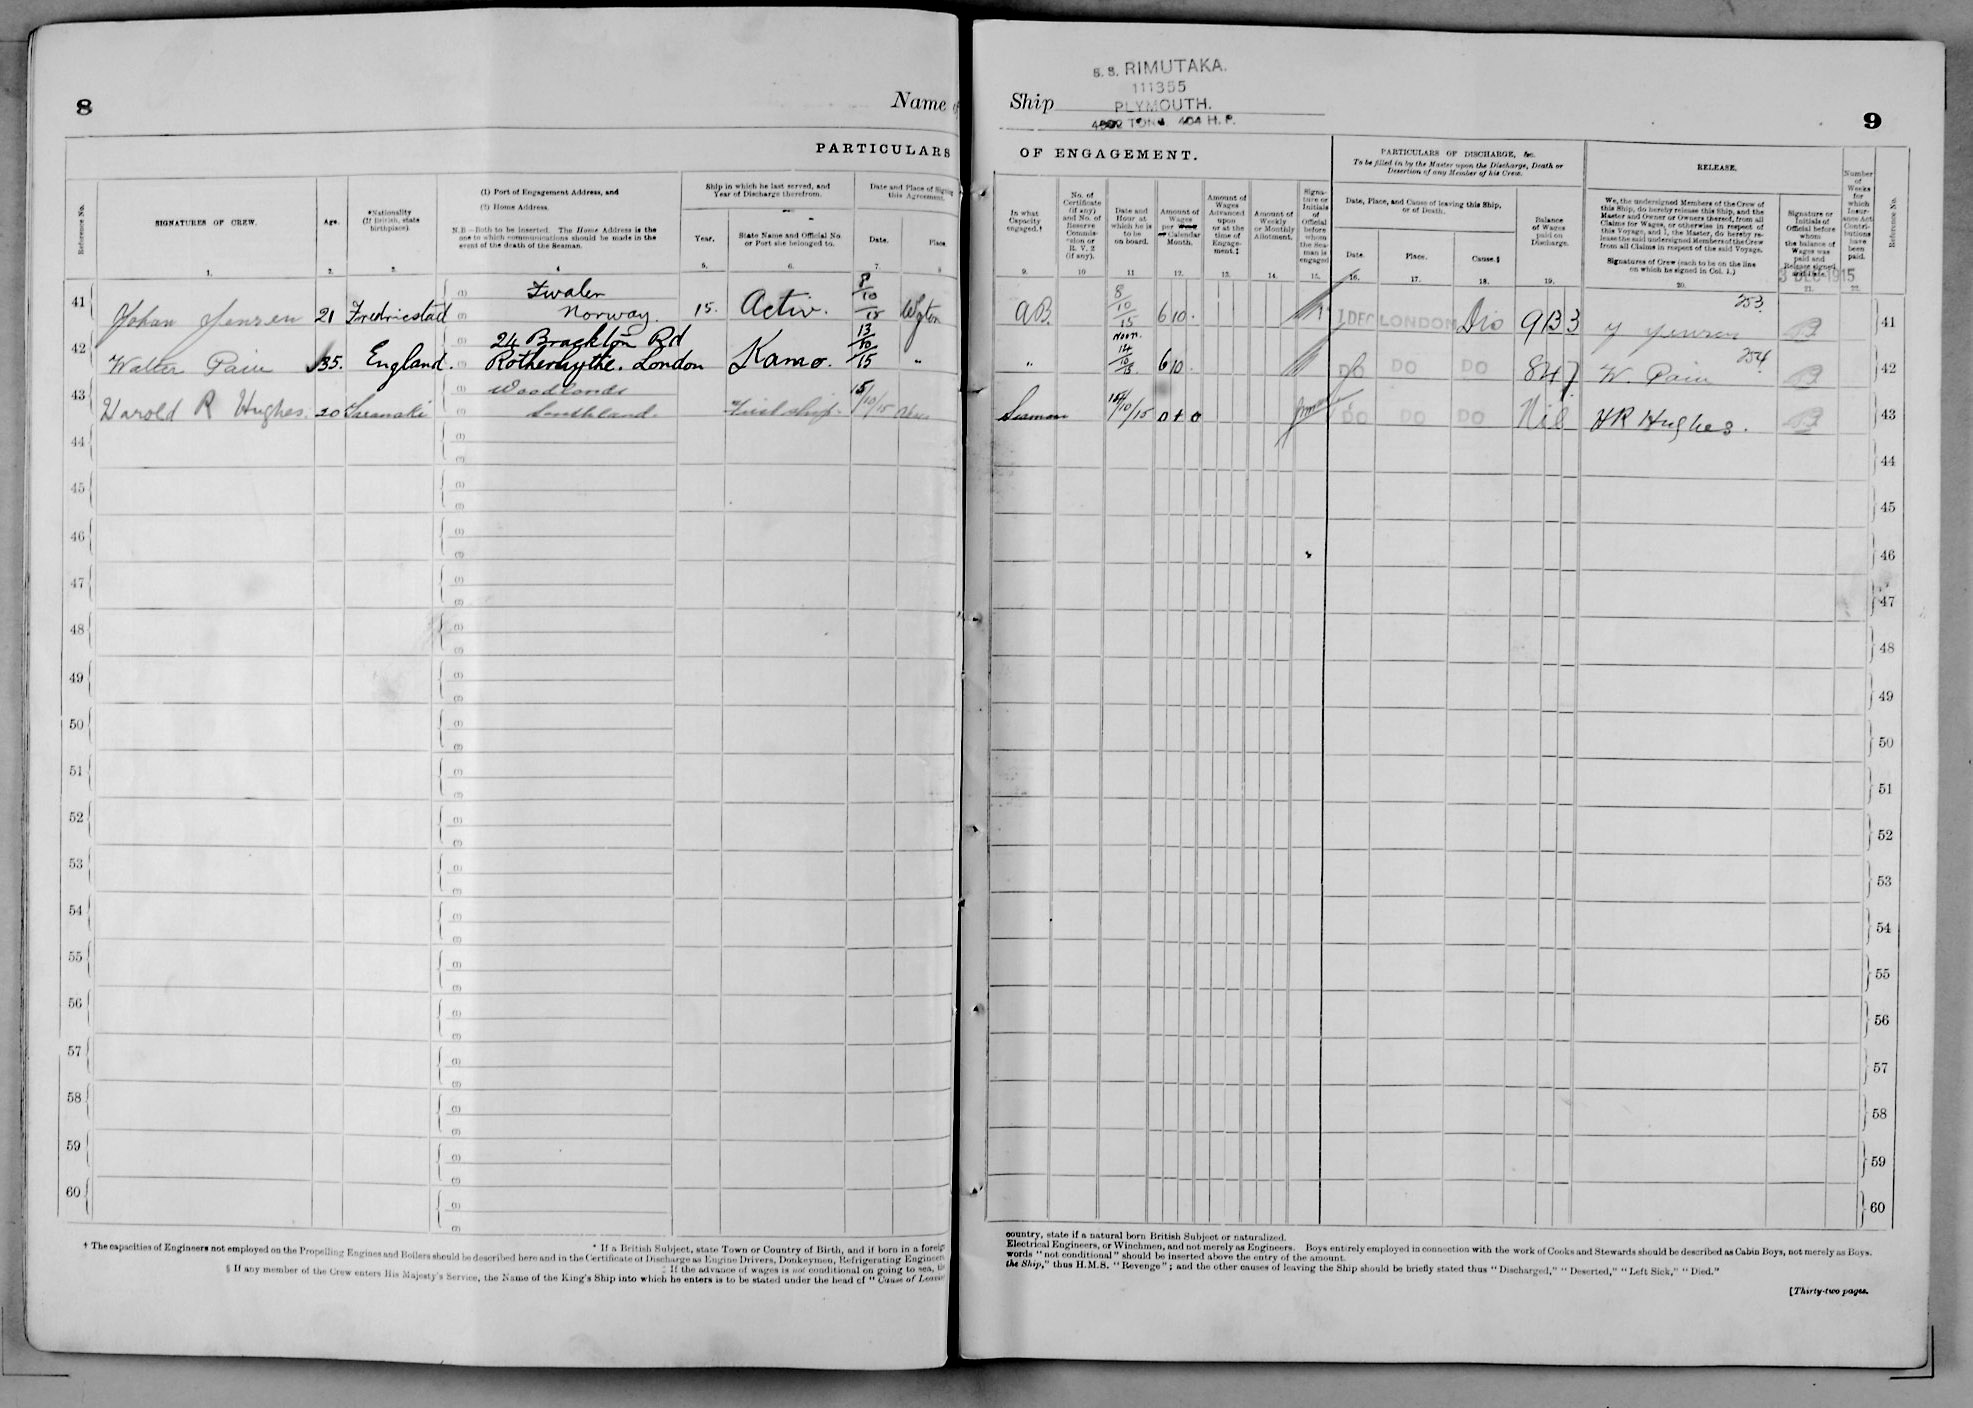 8
Name of
PARTICULARS
Reference No.
SIGNATURES OF CREW.
Age.
*Nationality
(If British, state
birthplace).
(1) Port of Engagement Address, and
(2) Home Address.
N.B.—Both to be inserted. The Home Address is the
one to which communications should be made in the
event of the death of the Seaman.
Ship in which he last served, and
Year of Discharge therefrom.
Year.
State Name and Official No.
or Port she belonged to.
Date and Place of Signing
this Agreement.
Date.
Place
1. 2. 3. 4 5. 6. 7 8
41 Johan Jensen 21 Fredricstad
(1)
(2) Norway. 15. Activ. 8/10/15 Wgton
42 Walter Pain 35. England.
(1) 24 Brackton Rd
(2) Rotherhythe. London Kamo. 13/10/15 "
43 Harold R Hughes. 20 Taranaki
(1) Woodlands
(2) Southland. First ship. 15/10/15
44 (1)
(2)
45 (1)
(2)
46 (1)
(2)
47 (1)
(2)
48 (1)
(2)
49 (1)
(2)
50 (1)
(2)
51 (1)
(2)
52 (1)
(2)
53 (1)
(2)
54 (1)
(2)
55 (1)
(2)
56 (1)
(2)
57 (1)
(2)
58 (1)
(2)
59 (1)
(2)
60 (1)
(2)
* If a British Subject, state Town or Country of Birth, and if born in a foreign
† The capacities of Engineers not employed on the Propelling Engines and Boilers should be described here and in the Certificate of Discharge as Engine Drivers, Donkeymen, Refrigerating Engineers
‡ If the advance of wages is not conditional on going to sea, the
§ If any member of the Crew enters His Majesty's Service, the Name of the King's Ship into which he enters is to be stated under the head of "Cause of Leaving
S. S. RIMUTAKA.
111355
Ship PLYMOUTH.
TONS 404 H. P.
9
OF ENGAGEMENT.
PARTICULARS OF DISCHARGE, &c.
To be filled in by the Master upon the Discharge, Death or
Desertion of any Member of his Crew.
RELEASE.
In what
Capacity
engaged.†
No. of
Certificate
(if any)
and No. of
Reserve
Commis-
sion or
R. V. 2
(if any).
Date and
Hour at
which he is
to be
on board.
Amount of
Wages
per Week
or Calendar
Month.
Amount of
Wages
Advanced
upon
or at the
time of
Engage-
ment.‡
Amount of
Weekly
or Monthly
Allotment.
Signa-
ture or
Initials
of
Official
before
whom
the Sea-
man is
engaged
Date, Place, and Cause of leaving this Ship,
or of Death.
Date.
Place.
Cause.§
Balance
of Wages
paid on
Discharge.
We, the undersigned Members of the Crew of
this Ship, do hereby release this Ship, and the
Master and Owner or Owners thereof, from all
Claims for Wages, or otherwise in respect of
this Voyage, and I, the Master, do hereby re-
lease the said undersigned Members of the Crew
from all Claims in respect of the said Voyage.
Signatures of Crew (each to be on the line
on which he signed in Col. 1.)
Signature or
Initials of
Official before
whom
the balance of
Wages was
paid and
Release signed
and date.
Number
of
Weeks
for
which
Insur-
ance Act
Contri-
butions
have
been
paid.
Reference No.
9. 10 11 12. 13. 14. 15. 16. 17. 18. 19. 20. 21. 22.
3 DEC 1915
AB 8/10/15 6 10. 1 DEC LONDON Dis 9 13 3 J Jensen 253 41
Noon.
" 14/10/15 6 10. DO DO DO 8 4 7 W. Pain 254 42
Seaman 15/10/15 DO DO DO Nil H R Hughes. 43
44
45
46
47
48
49
50
51
52
53
54
55
56
57
58
59
60
country, state if a natural born British Subject or naturalized.
Electrical Engineers, or Winchmen, and not merely as Engineers. Boys entirely employed in connection with the work of Cooks and Stewards should be described as Cabin Boys, not merely as Boys.
words "not conditional" should be inserted above the entry of the amount.
the Ship," thus H.M.S. "Revenge"; and the other causes of leaving the Ship should be briefly stated thus "Discharged," "Deserted," "Left Sick," "Died."
[Thirty-two pages.